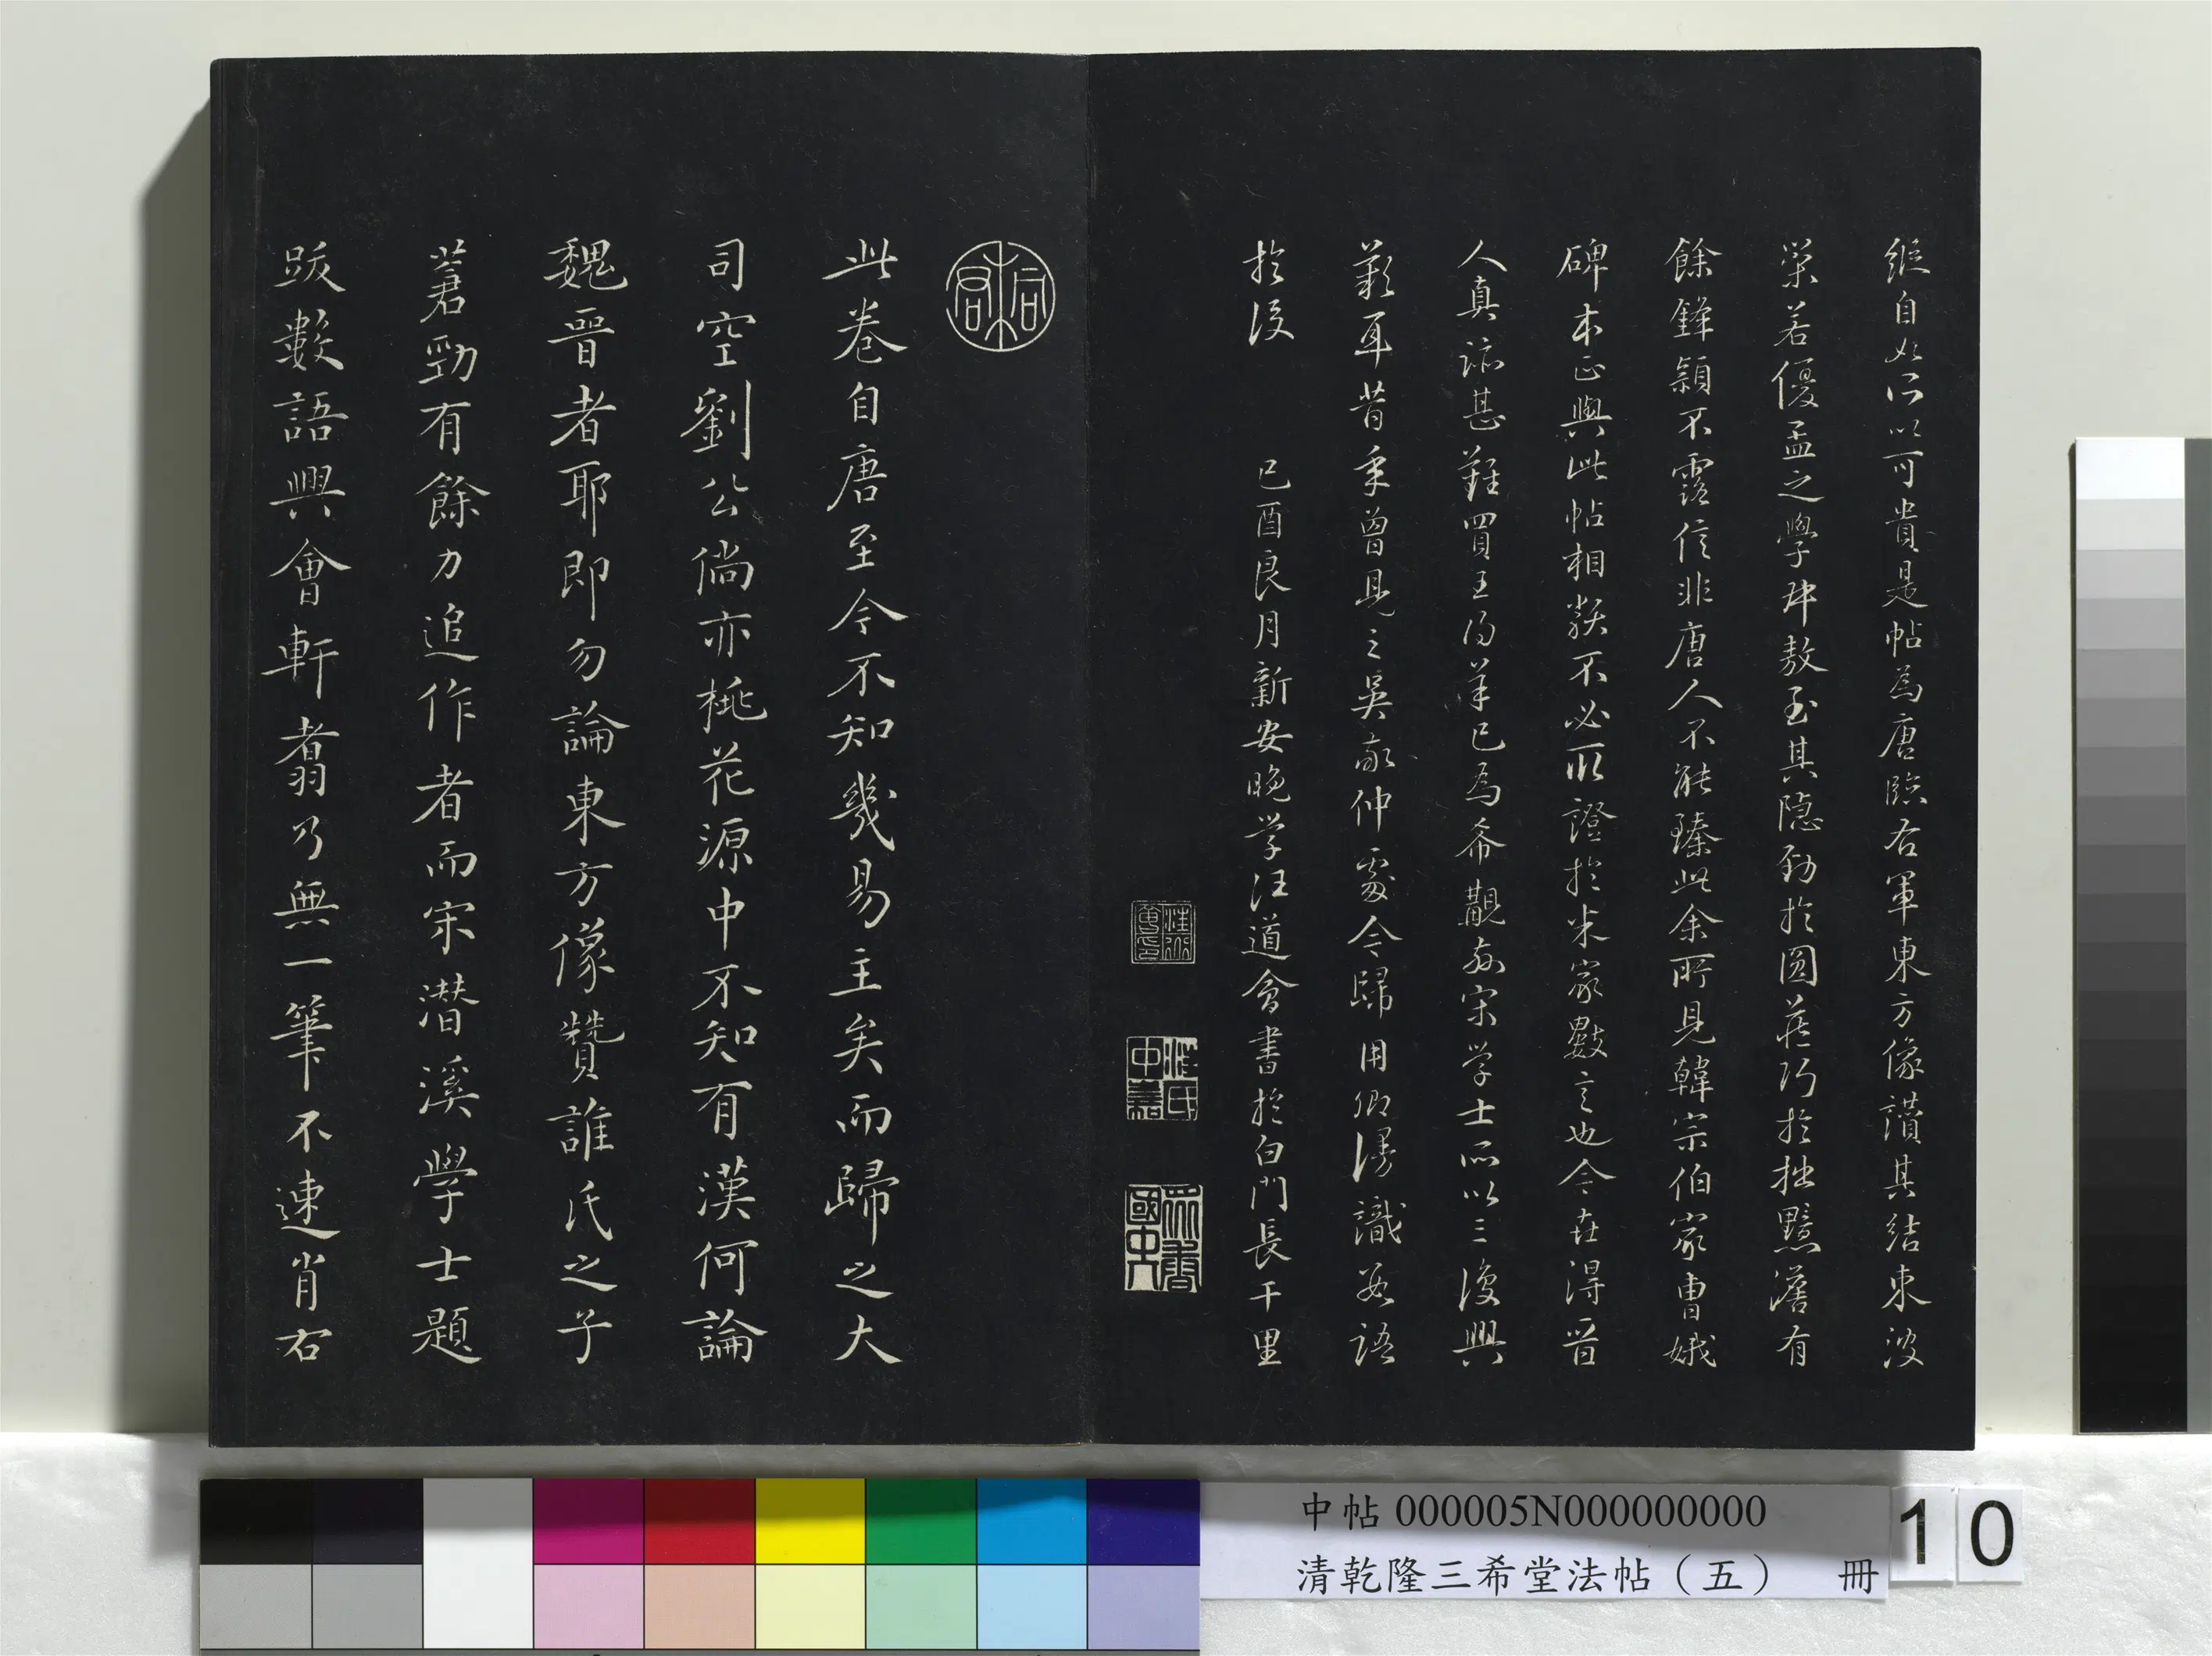 繇自如所以可貴是帖為唐臨右軍東方像讚其結束波
策若優孟之學叔敖至其隱勁於圓莊巧於拙黯澹有
餘鋒穎不露信非唐人不能臻此余所見韓宗伯家曹娥
碑本正與此帖相類不必取證於米家數言也今在得晉
人真跡甚難買王得羊已為希覯故宋学士所以三復興
歎耳昔年曾見之吳敬仲處今歸用卿漫識數語
於後
己酉良月新安晚学汪道會書於白門長干里
此卷自唐至今不知幾易主矣而歸之大
司空劉公倘亦桃花源中不知有漢何論
魏晉者耶即勿論東方像贊誰氏之子
蒼勁有餘力追作者而宋潛溪學士題
跋數語興會軒翥乃無一筆不逮肖右
中帖 000005N000000000
清乾隆三希堂法帖（五） 冊
10